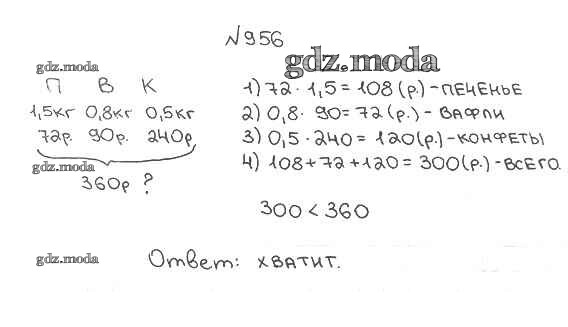 №956
gdz.moda
gdz.moda
П В К
1,5кг 0,8кг 0,5кг
72р. 90р. 240р.
gdz.moda
360р ?
1) 72 · 1,5 = 108 (р.) - ПЕЧЕНЬЕ
2) 0,8 · 90 = 72 (р.) - ВАФЛИ
3) 0,5 · 240 = 120 (р.) - КОНФЕТЫ
4) 108 + 72 + 120 = 300 (р.) - ВСЕГО.
300 < 360
gdz.moda
Ответ: ХВАТИТ.